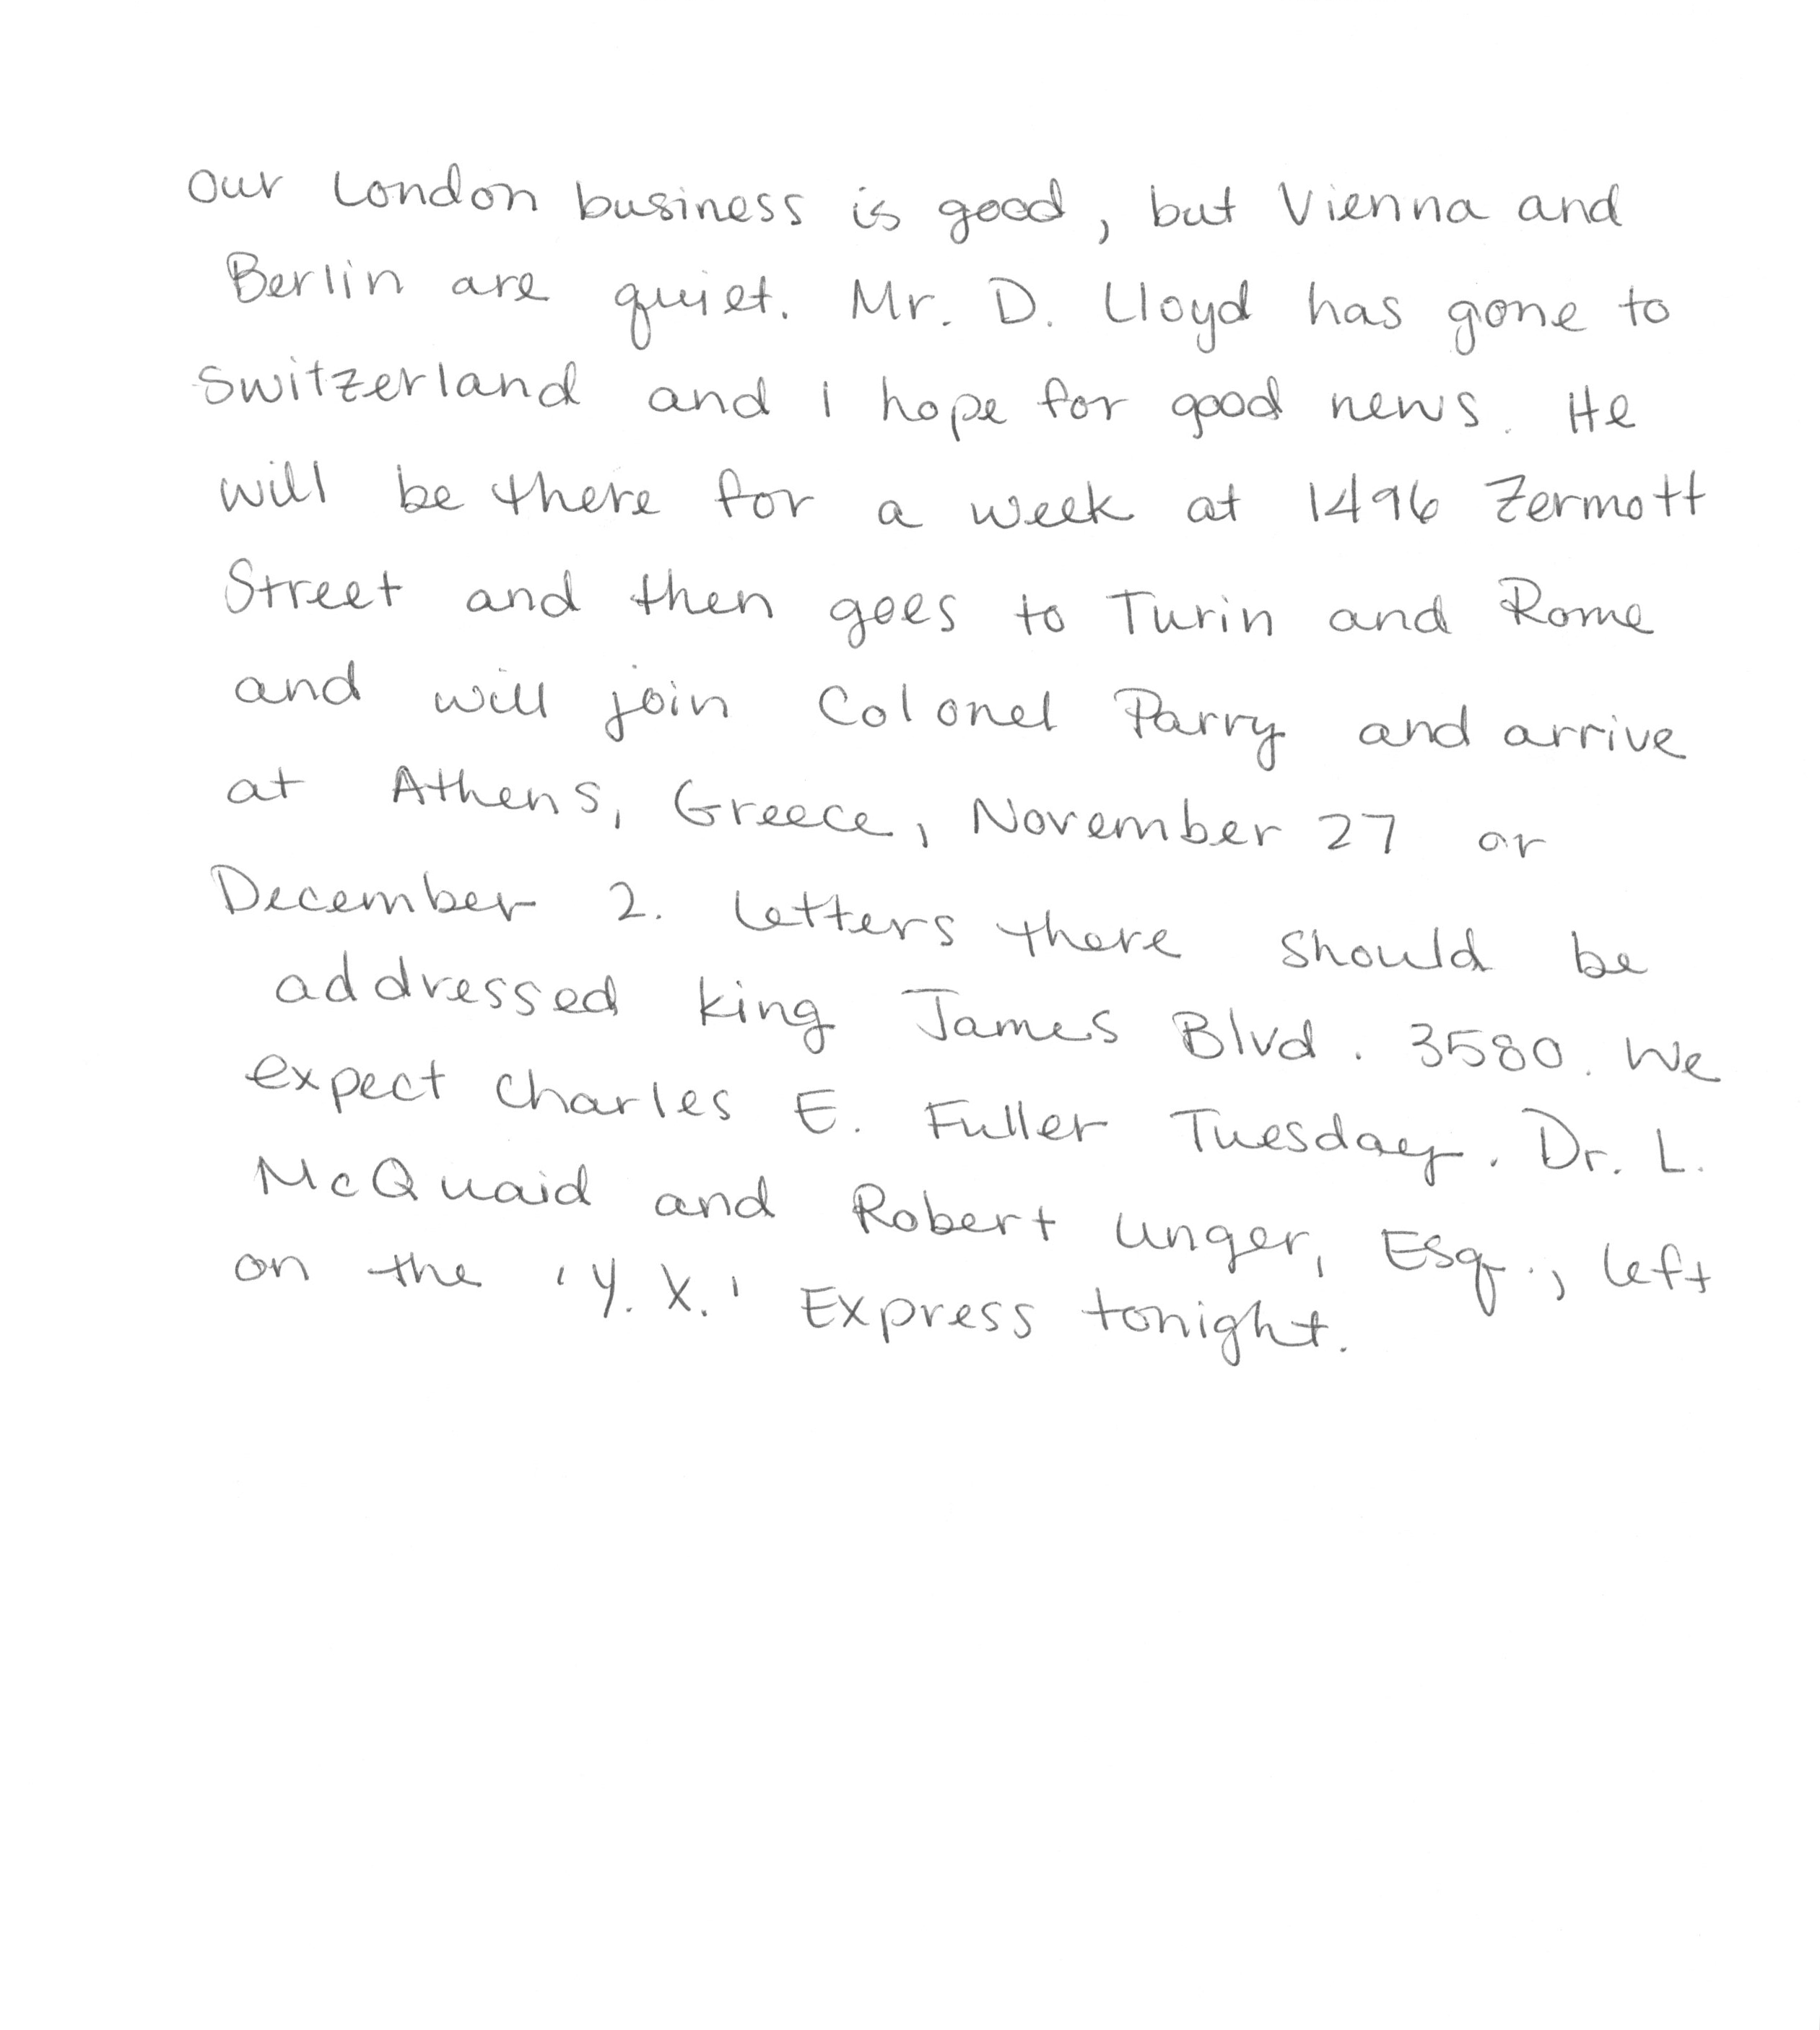 Our London business is good, but Vienna and
Berlin are quiet. Mr. D. Lloyd has gone to
Switzerland and I hope for good news. He
will be there for a week at 1496 Zermott
Street and then goes to Turin and Rome
and will join Colonel Parry and arrive
at Athens, Greece, November 27 or
December 2. Letters there should be
addressed King James Blvd. 3580. We
expect Charles E. Fuller Tuesday. Dr. L.
McQuaid and Robert Unger, Esq., left
on the 'Y. X.' Express tonight.